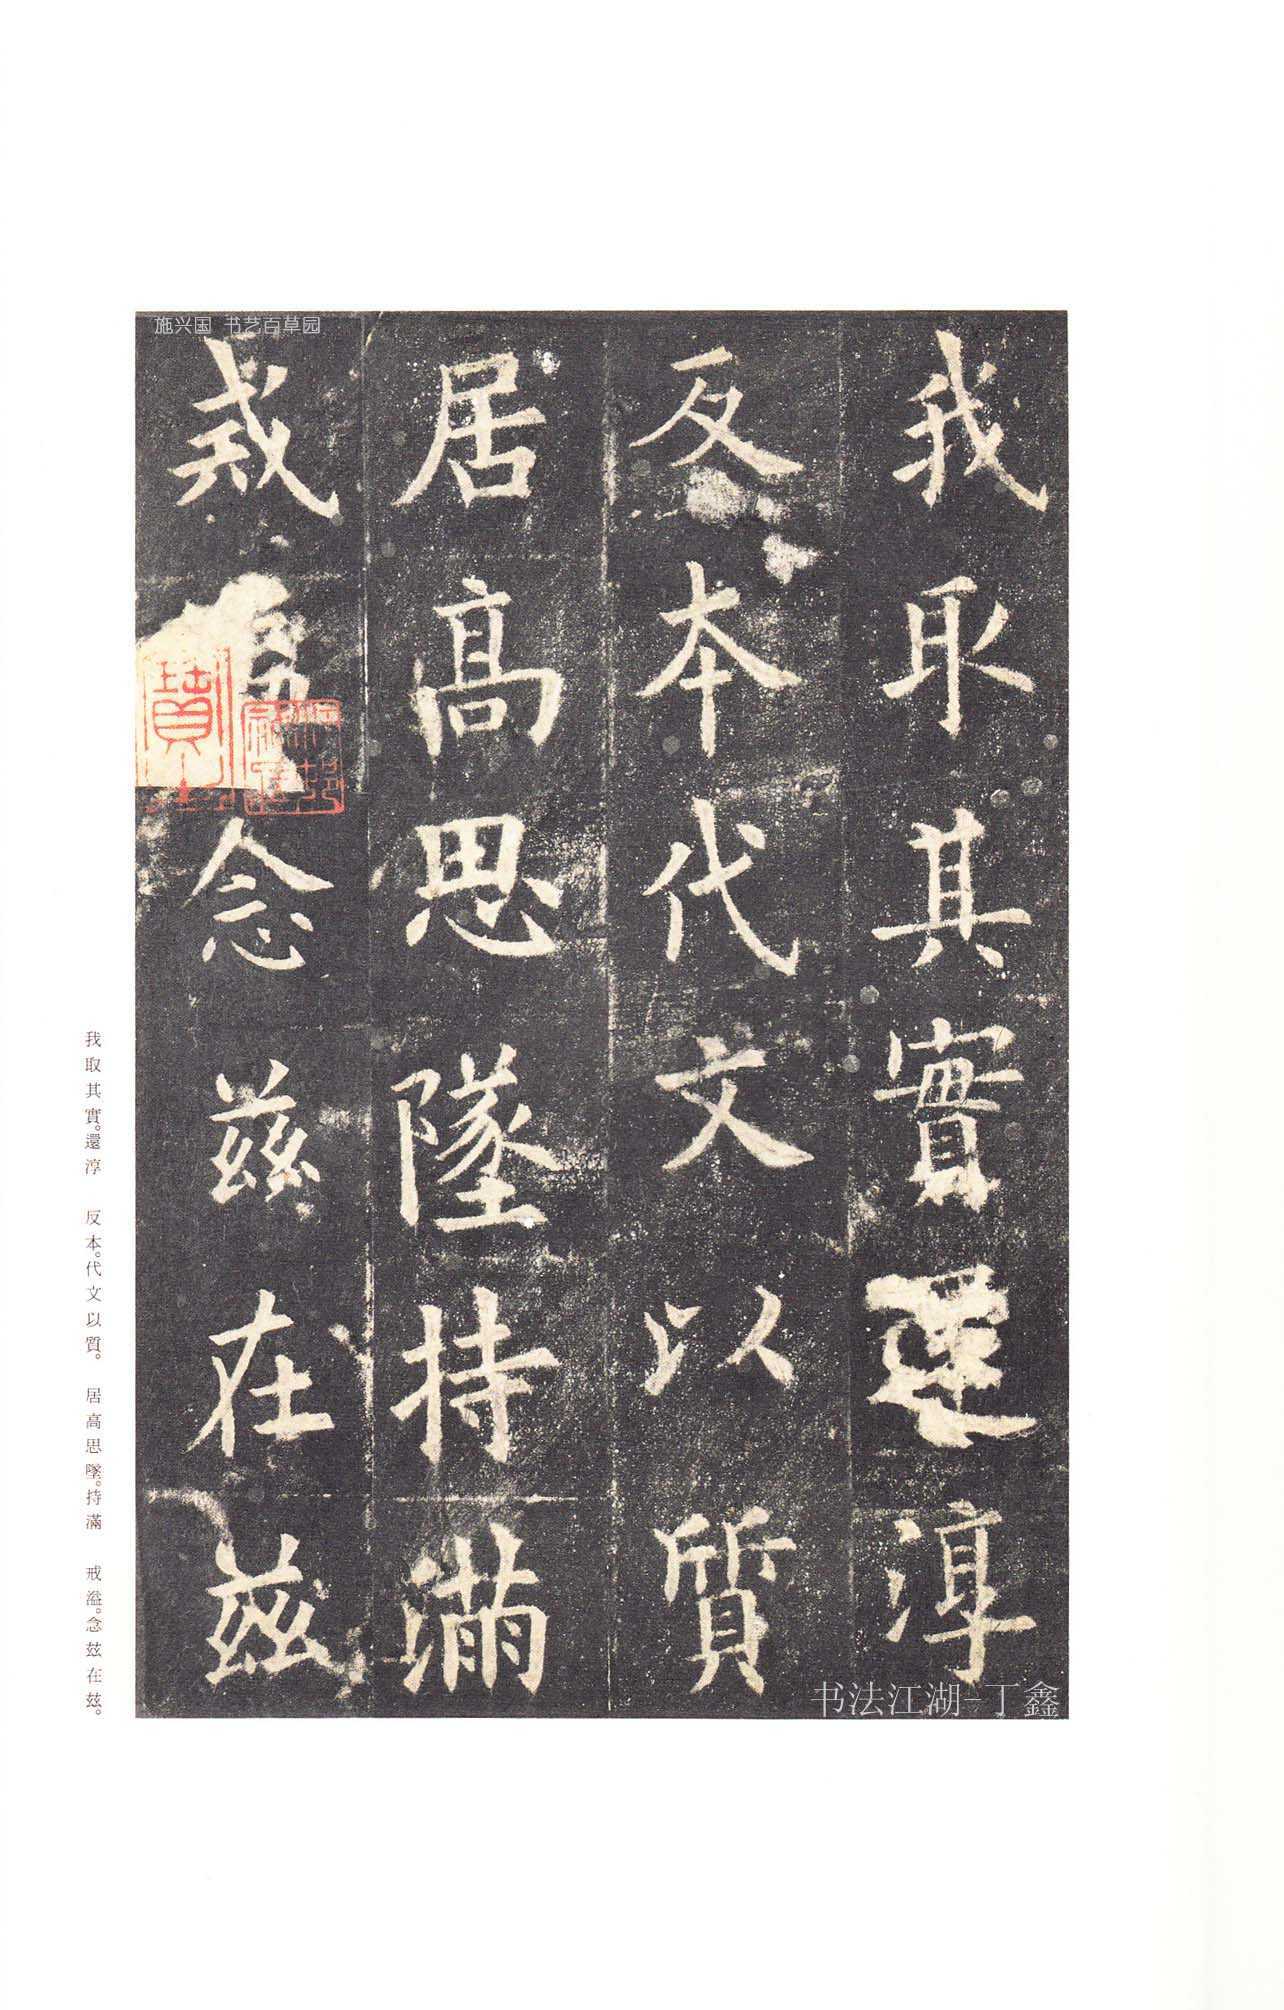 施兴国 书艺百草园
我取其實還淳
反本代文以質
居高思墜持滿
戒溢念茲在茲
我取其實。還淳 反本。代文以質。 居高思墜。持滿 戒溢。念茲在茲。
书法江湖-丁鑫